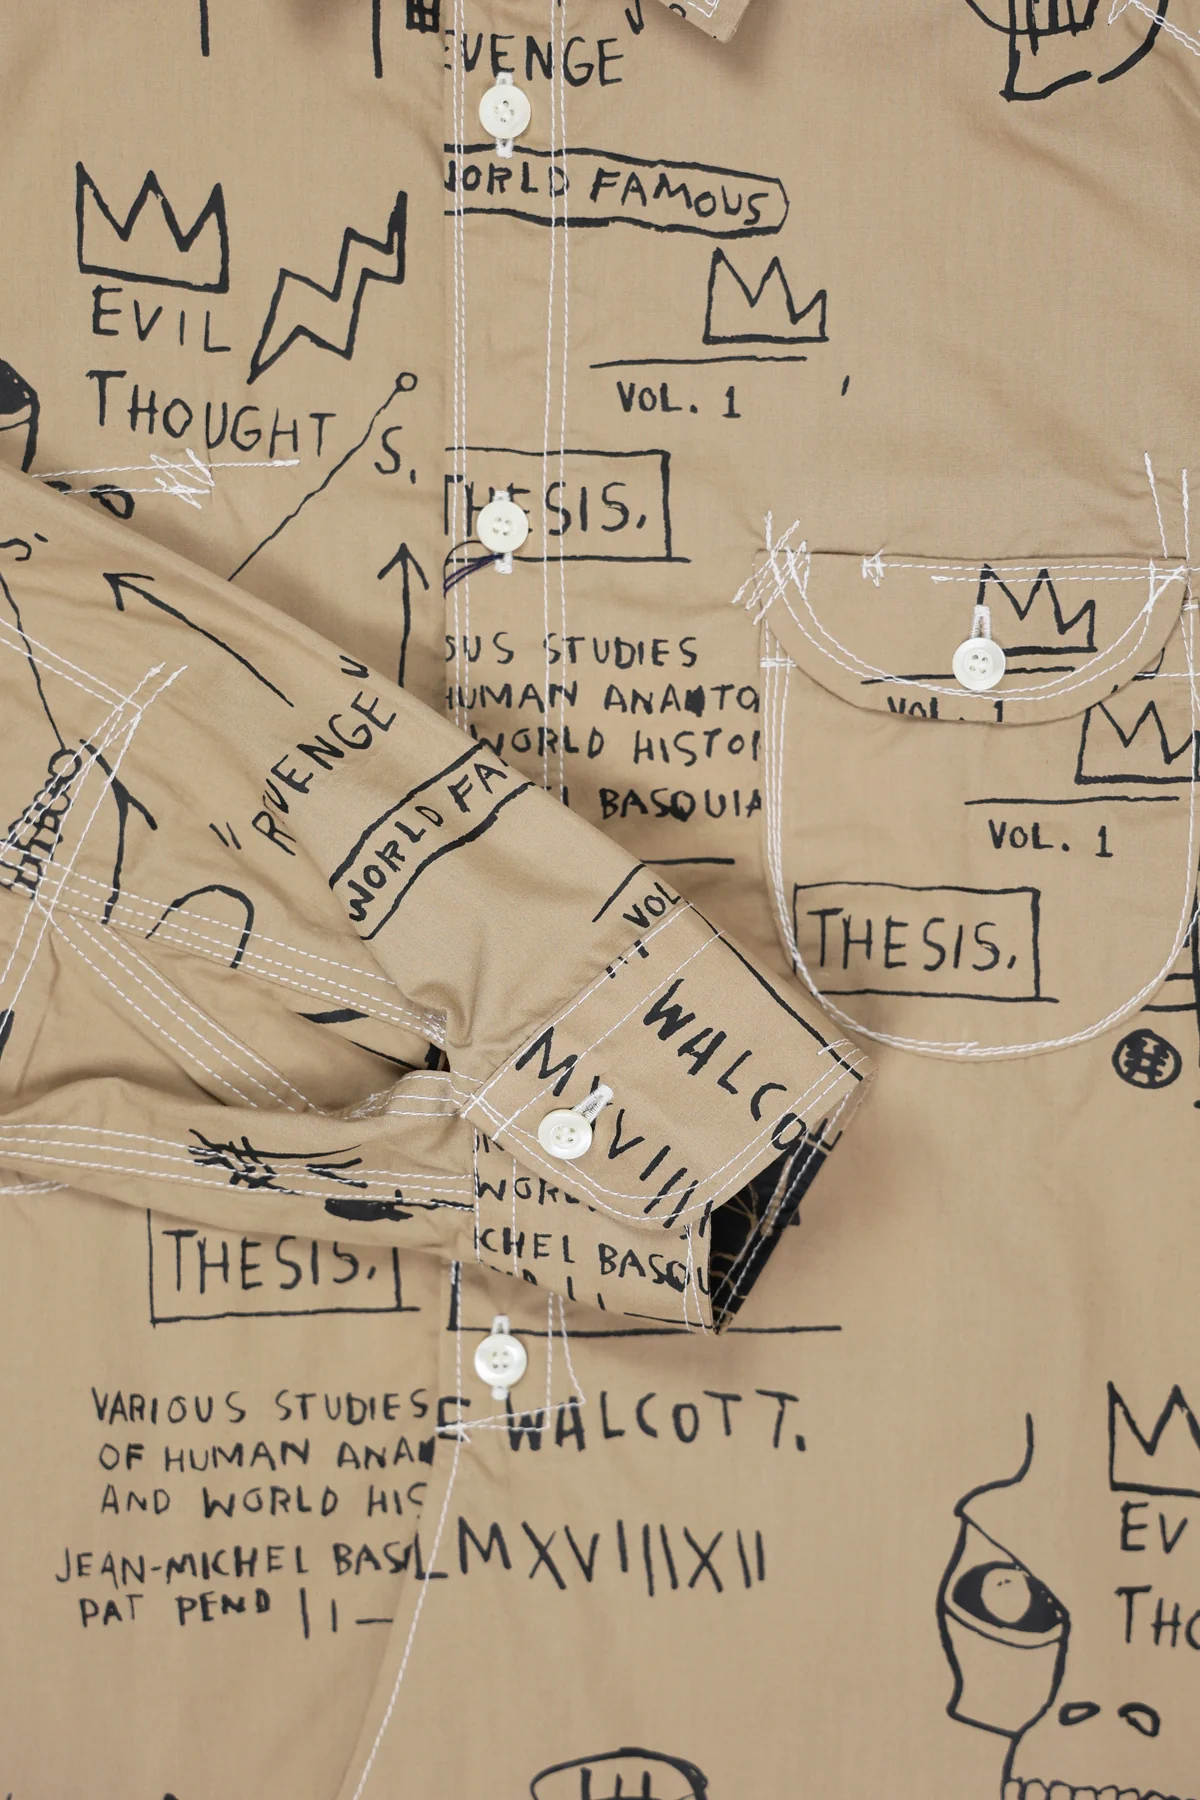 EVENGE
WORLD FAMOUS
EVIL
THOUGHT
S,
VOL. 1
THESIS.
OUS STUDIES
HUMAN ANA TO
WORLD HISTO
EL BASQUIA
VOL. 1
VOL. 1
THESIS.
S.
"REVENGE"
WORLD FA
VOL
WALCO
M VIII
WORL
CHEL BASQU
THESIS.
VARIOUS STUDIES
OF HUMAN ANA
AND WORLD HIS
JEAN-MICHEL BAS
PAT PEND ||—
E WALCOTT.
L MXVIIIXII
EV
THO